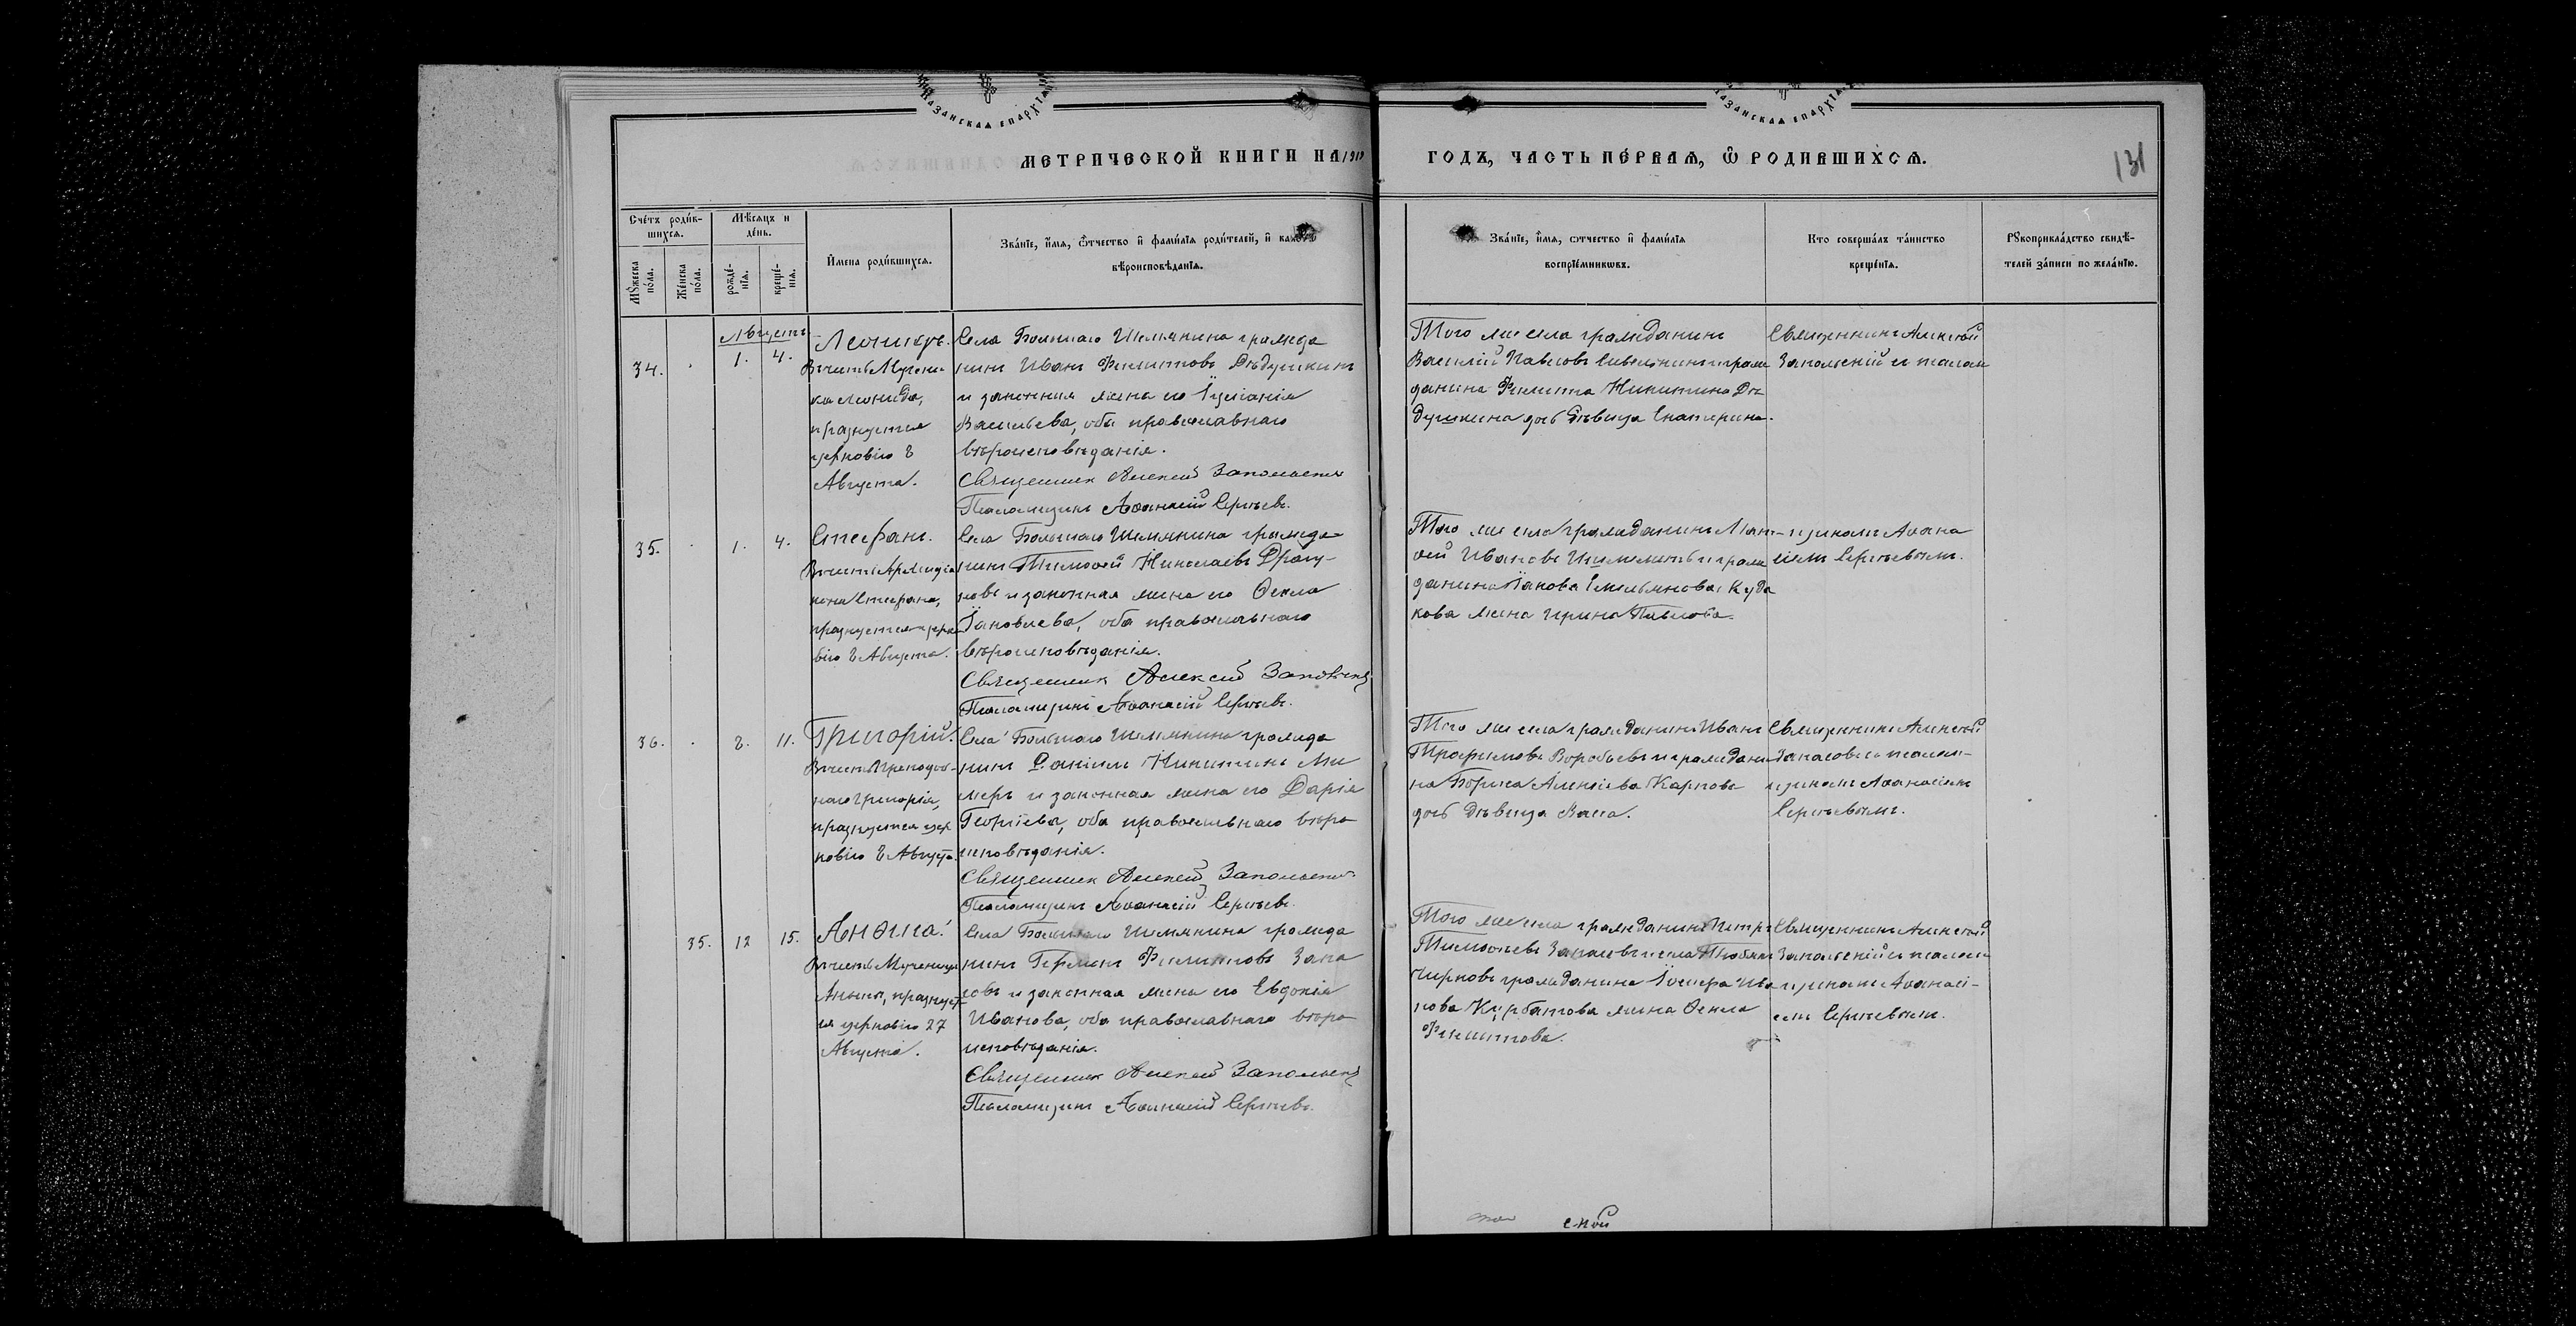 КАЗАНСКАЯ ЕПАРХІЯ
КАЗАНСКАЯ ЕПАРХІЯ
МЕТРИЧЕСКОЙ КНИГИ НА 1919
ГОДЪ, ЧАСТЬ ПЕ́РВАЯ, Ѡ РОДИВШИХСЯ.
131
Сче́тъ роди́в-
шихся.
Мѣсяцъ и
де́нь.
Мꙋ́жеска
по́ла.
Же́нска
по́ла.
рожде́-
нїя.
креще́-
нїя.
Имена роди́вшихся.
Зва́нїе, и́мя, ѻ́тчество и фами́лїя роди́телей, и како́гѡ
вѣроисповѣ́данїя.
Зва́нїе, и́мя, ѻ́тчество и фами́лїя
воспрїе́мникѡвъ.
Кто соверша́лъ та́инство
креще́нїя.
Рꙋкоприкла́дство свидѣ́-
телей за́писи по жела́нїю.
Августъ
34.
1.
4.
Леонидъ.
Въ честь Мучени-
ка Леонида,
празнуется
церковію 8
Августа.
Села Большаго Шемякина гражда
нинъ Иванъ Филиповъ Дѣдушкинъ
и законная жена его Іуліанія
Васильева, оба православнаго
вѣроисповѣданія.
Священник Алексей Запольский
Псаломщикъ Аѳанасій Сергѣевъ.
Того же села гражданинъ
Василій Павловъ и граж
данина Филипа Никитина Дѣ
душкина дочь дѣвица Екатерина.
Священникъ Алексѣй
Запольскій и псалом
35.
1.
4.
Стефанъ.
Въ честь Архидіа
кона Стефана,
празнуется церко
вію 2 Августа.
Села Большаго Шемякина гражда
нинъ Тимоѳей Николаевъ
и законная жена его Ѳекла
Іаковлева, оба православнаго
вѣроисповѣданія.
Священник Алексей Запольский
Псаломщикъ Аѳанасій Сергѣевъ.
Того же села гражданинъ Мат-
ѳей Ивановъ и граж
данина Іакова Емельянова Куда
кова жена Ирина Павлова.
щикомъ Аѳана
сіемъ Сергѣевымъ.
36.
2.
11.
Григорій.
Въ честь Преподоб-
наго Григорія,
празнуется цер
ковію 8 Августа.
Села Большаго Шемякина гражда
нинъ Даніилъ Никитинъ
и законная жена его Дарія
Георгіева, оба православнаго вѣро
исповѣданія.
Священник Алексей Запольский
Псаломщикъ Аѳанасій Сергѣевъ.
Того же села гражданинъ Иванъ
Трофимовъ Воробьевъ и граждани
на Бориса Алексіева Карпова
дочь дѣвица Васса.
Священникъ Алексѣй
псалом-
щикомъ Аѳанасіемъ
Сергѣевымъ.
35.
12
15.
Анѳиса.
Въ честь Мученицы
Анѳисы, празнует
ся церковію 27
Августа.
Села Большаго Шемякина гражда
нинъ Германъ Филиповъ Запа
ловъ и законная жена его Евдокія
Иванова, оба православнаго вѣро
исповѣданія.
Священник Алексей Запольский
Псаломщикъ Аѳанасій Сергѣевъ.
Того же села гражданинъ Петръ
Тимоѳеевъ Запаловъ и села
гражданина Іосифа Ива
нова Курбатова жена Ѳекла
Филиппова.
Священникъ Алексѣй
Запольскій съ псалом
щикомъ Аѳанасі-
емъ Сергѣевымъ.